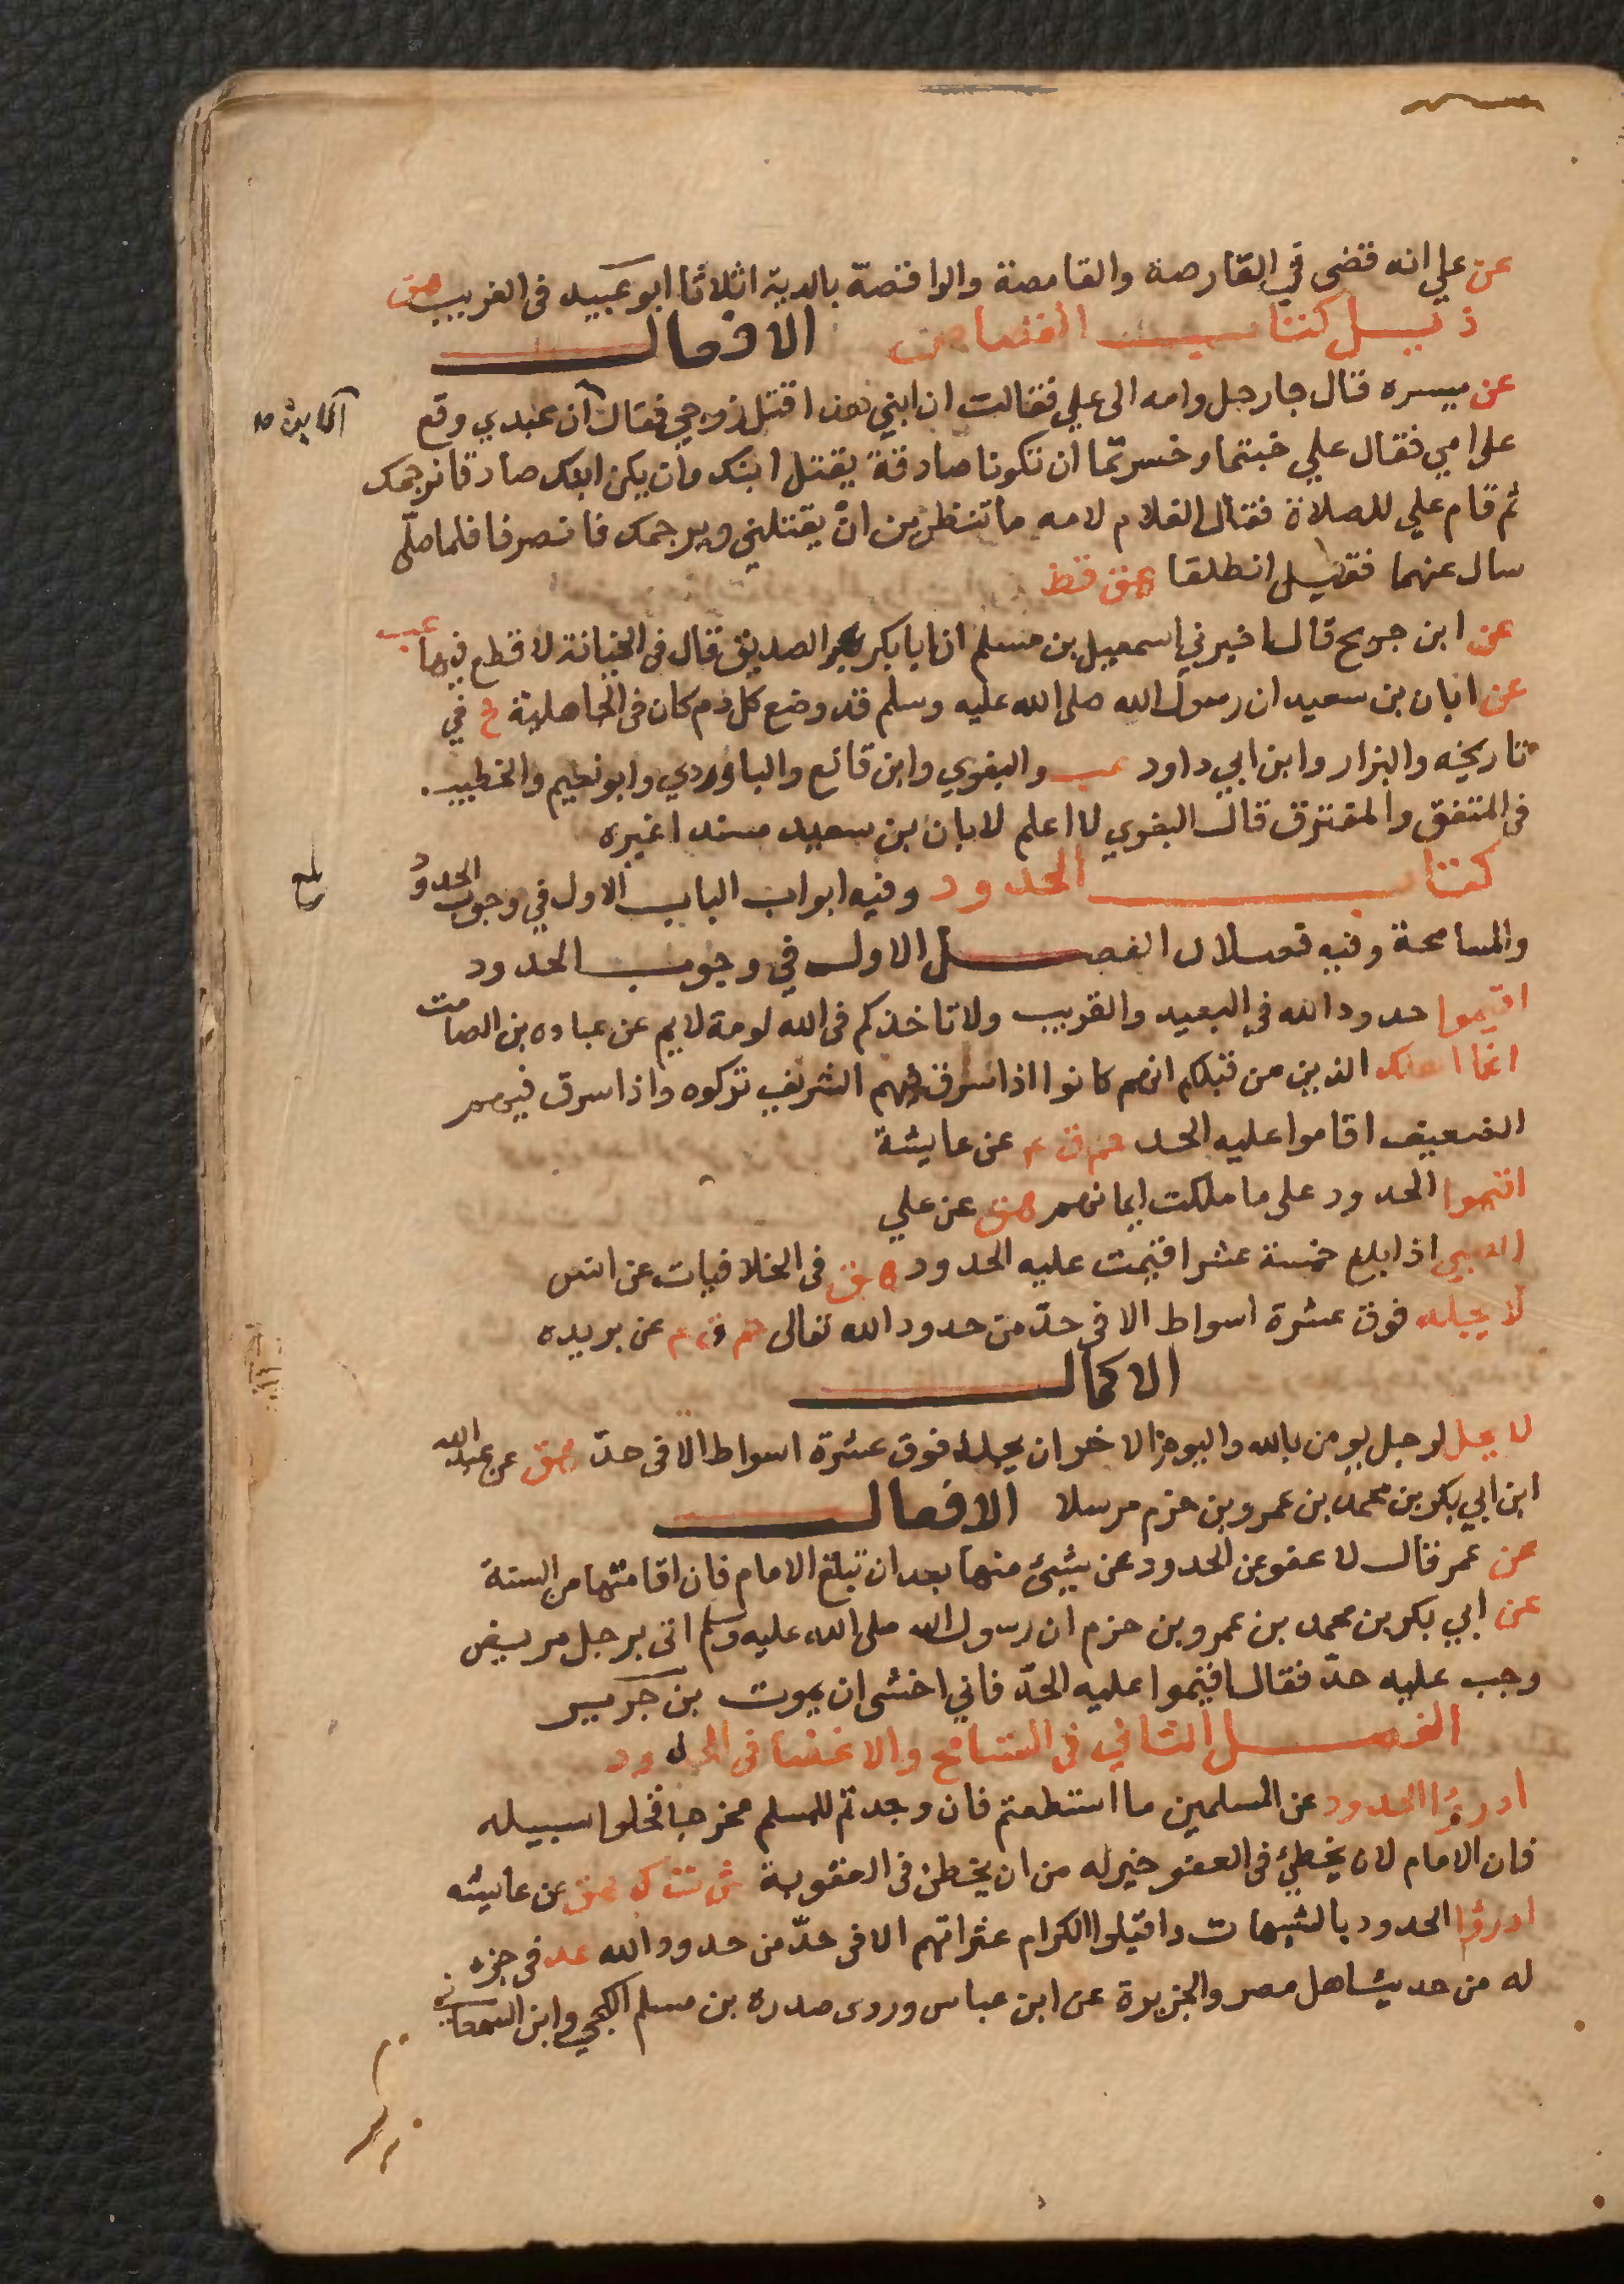 عن علي انه قضى في القارصة والقامصة والواقصة بالدية اثلاثا ابو عبيد في الغريب هق
ذيل كتاب القصاص الافعال
عن ميسره قال جا رجل وامه الى علي فقالت ان ابني هذا قتل زوجي فقال الابن ان عبدي وقع
على امي فقال علي خبتما وخسرتما ان تكونا صادقة يقتل ابنك وان يكن ابنك صادقا نرجمك
ثم قام علي للصلاة فقال الغلام لامه ما تنظرين ان يقتلني ويرجمك فانصرفا فلما صلى
سال عنهما فقيل انطلقا هق قط
عن ابن جريح قال اخبرني اسمعيل بن مسلم ان ابا بكر الصديق قال في الخيانة لا قطع فيها عب
عن ابان بن سعيد ان رسول الله صلى الله عليه وسلم قد وضع كل دم كان في الجاهلية خ في
تاريخه والبزار وابن ابي داود عب والبغوي وابن قانع والباوردي وابو نعيم والخطيب.
في المتفق والمفترق قال البغوي لا اعلم لابان بن سعيد مسندا غيره
كتاب الحدود وفيه ابواب الباب الاول في وجوب الحدود
والمسامحة وفيه فصلان الفصل الاول في وجوب الحدود
اقيموا حدود الله في البعيد والقريب ولا تاخذكم في الله لومة لايم عن عباده بن الصامت
انما اهلك الذين من قبلكم انهم كانوا اذا سرق فيهم الشريف تركوه واذا سرق فيهم
الضعيف اقاموا عليه الحد حم ق ع عن عايشة
اقيموا الحدود على ما ملكت ايمانهم هق عن علي
الصبي اذا بلغ خمسة عشر اقيمت عليه الحدود هق في الخلافيات عن انس
لا يجلد فوق عشرة اسواط الا في حدّ من حدود الله تعالى حم ق ع عن بريده
الاكمال
لا يحل لرجل يومن بالله واليوم الاخر ان يجلد فوق عشرة اسواط الا في حدّ هق عن عبد الله
ابن ابي بكر بن محمد بن عمرو بن حزم مرسلا الافعال
عن عمر قال لا عفو عن الحدود عن شيئ منها بعد ان تبلغ الامام فان اقامتها من السنة
عن ابي بكر بن محمد بن عمرو بن حزم ان رسول الله صلى الله عليه وسلم اتى برجل مريض
وجب عليه حدّ فقال اقيموا عليه الحدّ فاني اخشى ان يموت بن جرير
الفصل الثاني في التسامح والاغضا في الحدود
ادرؤا الحدود عن المسلمين ما استطعتم فان وجدتم للمسلم مخرجا فخلوا سبيله
فان الامام لان يخطئ في العفو خير له من ان يخطئ في العقوبة ش ت ك هق عن عايشه
ادرؤا الحدود بالشبهات واقيلوا الكرام عثراتهم الا في حدّ من حدود الله عد في جزء
له من حديث اهل مصر والجزيرة عن ابن عباس وروى صدره بن مسلم الكجي وابن السمعاني
بلغ